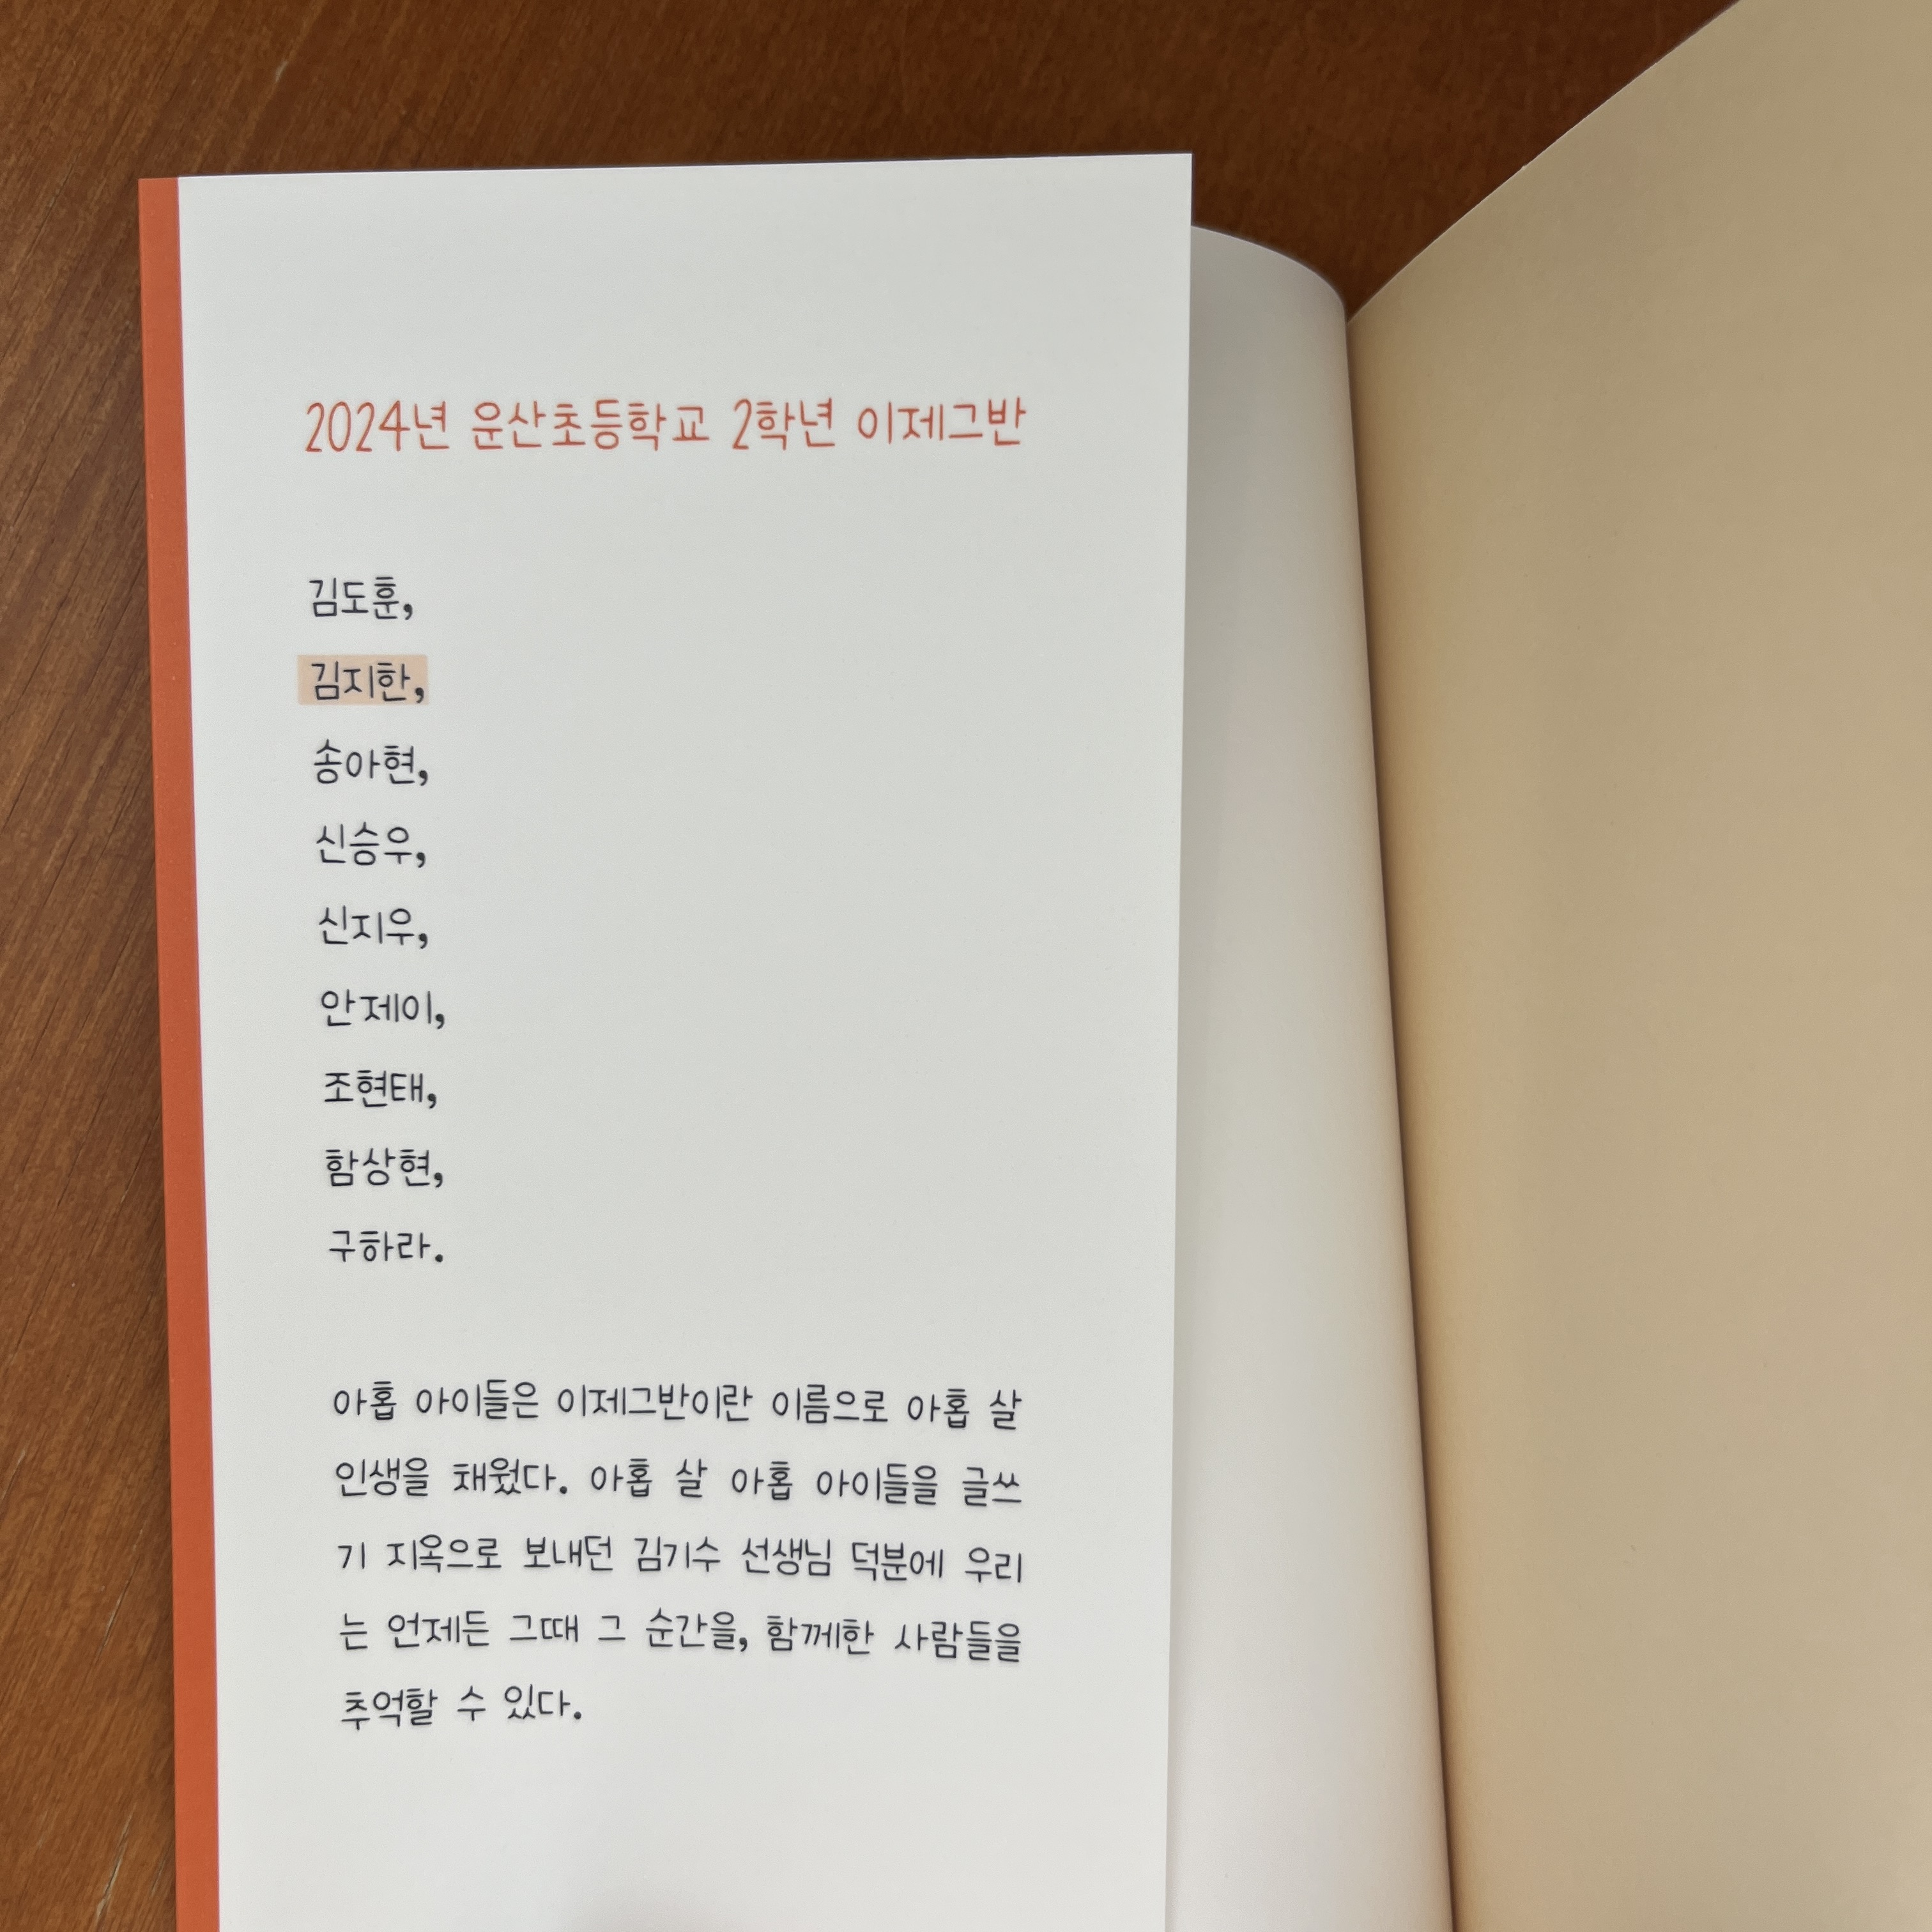 2024년 운산초등학교 2학년 이제그반
김도훈,
김지한,
송아현,
신승우,
신지우,
안제이,
조현태,
함상현,
구하라.
아홉 아이들은 이제그반이란 이름으로 아홉 살
인생을 채웠다. 아홉 살 아홉 아이들을 글쓰
기 지옥으로 보내던 김기수 선생님 덕분에 우리
는 언제든 그때 그 순간을, 함께한 사람들을
추억할 수 있다.